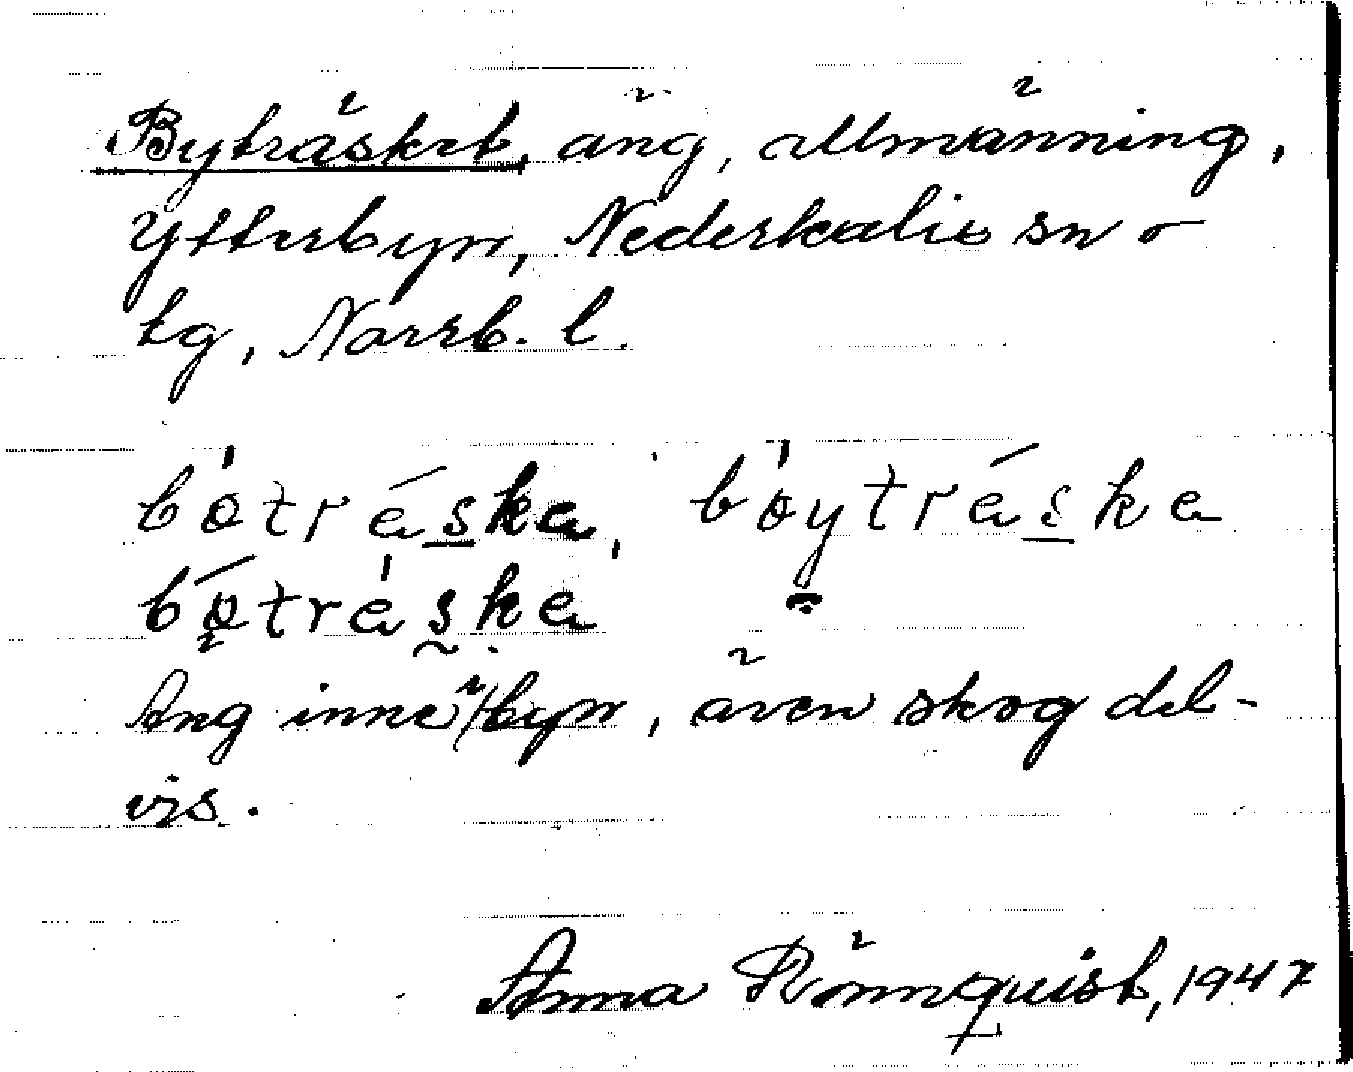 Byträsket, äng, allmänning,
Ytterbyn, Nederkalix sn o
tg, Norrb. l.
bötraska, böytraska
bötraska
Äng inne i byn, även skog del-
vis.
Anna Rönnquist, 1947